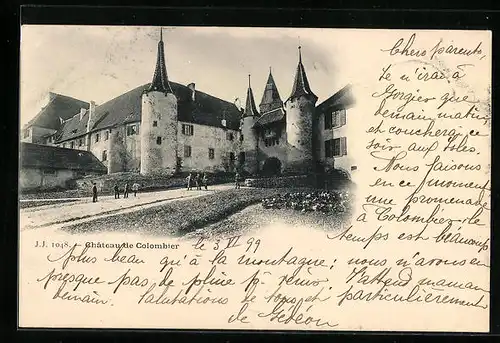 Chers parents,
Je n'irai à
Gorgier que
demain matin
et coucherai ce
soir aux
Nous faisons
en ce moment
une promenade
à Colombier. le
temps est beaucoup
J.J. 1048. - Château de Colombier
le 3 VI 99
plus beau qu'à la montagne; nous n'avons en
presque pas de pluie J'attends maman
demain. Salutations de tous et particulièrement
de Gédéon